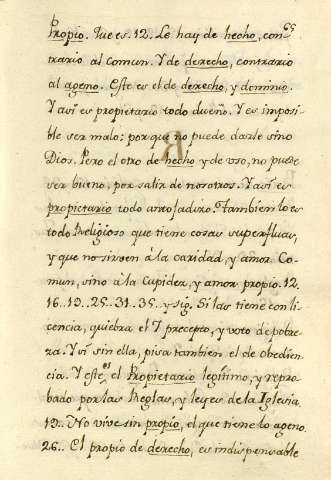 65
Propio. Que es. 12. Le hay de hecho, con-
trario al comun. Y de derecho, contrario
al ageno. Este es el de derecho, y dominio.
Y asi es propietario todo dueño. Y es imposi-
ble ser malo: porque no puede darle sino
Dios. Pero el otro de hecho y de uso, no puede
ser bueno, por salir de nosotros. Y asi es
propietario todo
Tambien lo es
todo Religioso que tiene cosas superfluas,
y que no sirven à la caridad, y amor Co-
mun, sino à la Cupidez, y amor propio. 12.
16. 19. 25. 31. 35. y sig. Si las tiene con li-
cencia, quiebra el 7 precepto, y voto de pobre-
za. Y si sin ella, pisa tambien el de obedien-
cia. Y este es el Propietario legitimo, y repro-
bado por las Reglas, y leyes de la Iglesia.
19. No vive sin propio, el que tiene lo ageno.
26.. El propio de derecho, es indispensable